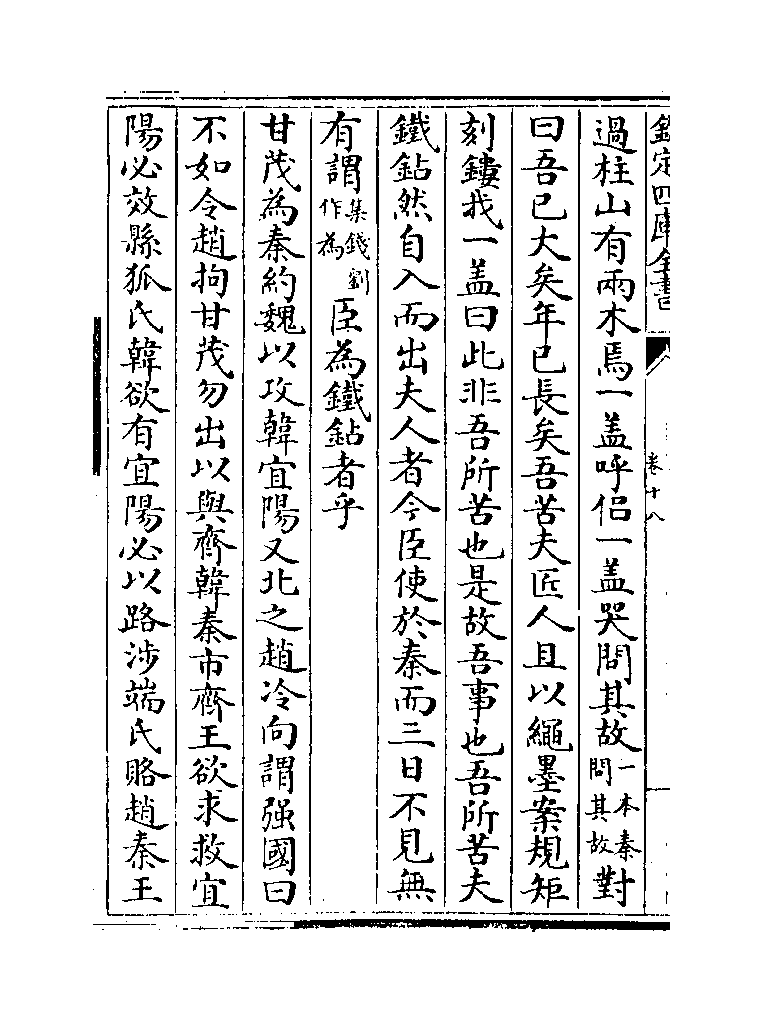 欽定四庫全書
卷十八
過柱山有兩木焉一盖呼侣一盖哭問其故一本秦問其故對
曰吾已大矣年已長矣吾苦夫匠人且以繩墨案規矩
刻鏤我一盖曰此非吾所苦也是故吾事也吾所苦夫
鐵鈷然自入而出夫人者今臣使於秦而三日不見無
有謂集錢劉作為臣為鐵鈷者乎
甘茂為秦約魏以攻韓宜陽又北之趙冷向謂强國曰
不如令趙拘甘茂勿出以與齊韓秦市齊王欲求救宜
陽必效縣狐氏韓欲有宜陽必以路涉端氏賂趙秦王